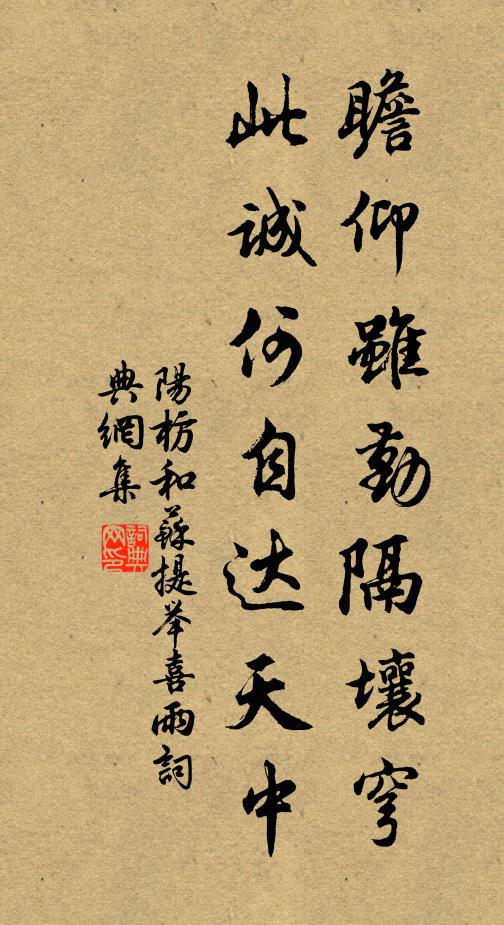 瞻仰雖勤隔壤穹
此誠何自达天中
陽枋和蘇提举喜雨詞
典網集
詞典網印